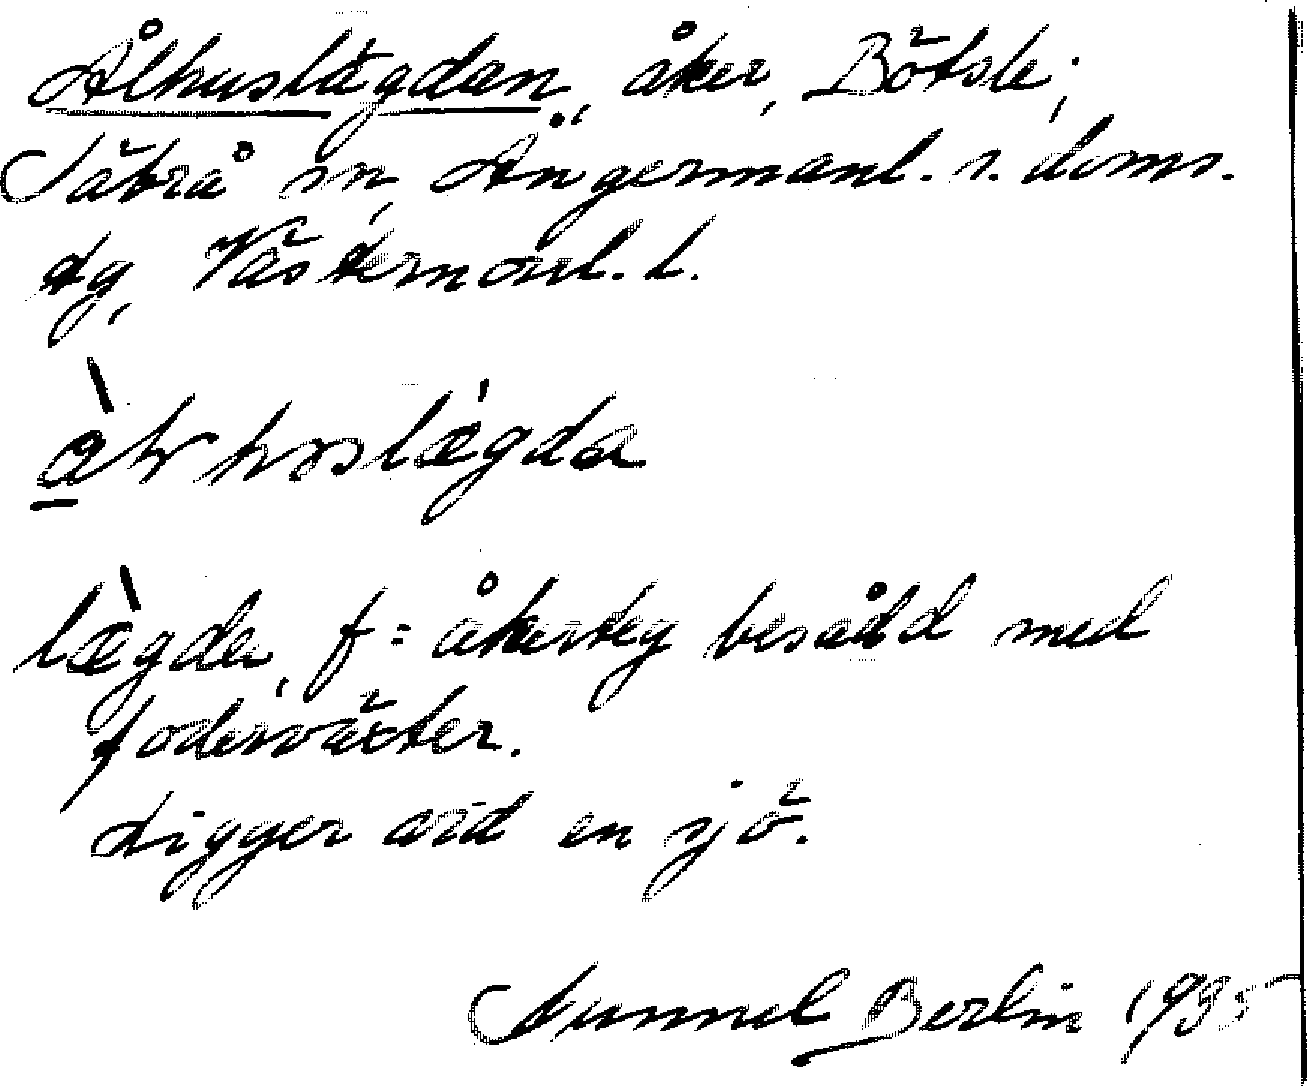 Ålhuslägdan, åker, Bötsle,
Säbrå sn, Ångermanl. s. doms.
dg, Västernorrl. l.
lægda, f = åkerteg besådd med
foderväxter.
Ligger vid en sjö.
Gunnel Berlin 1935